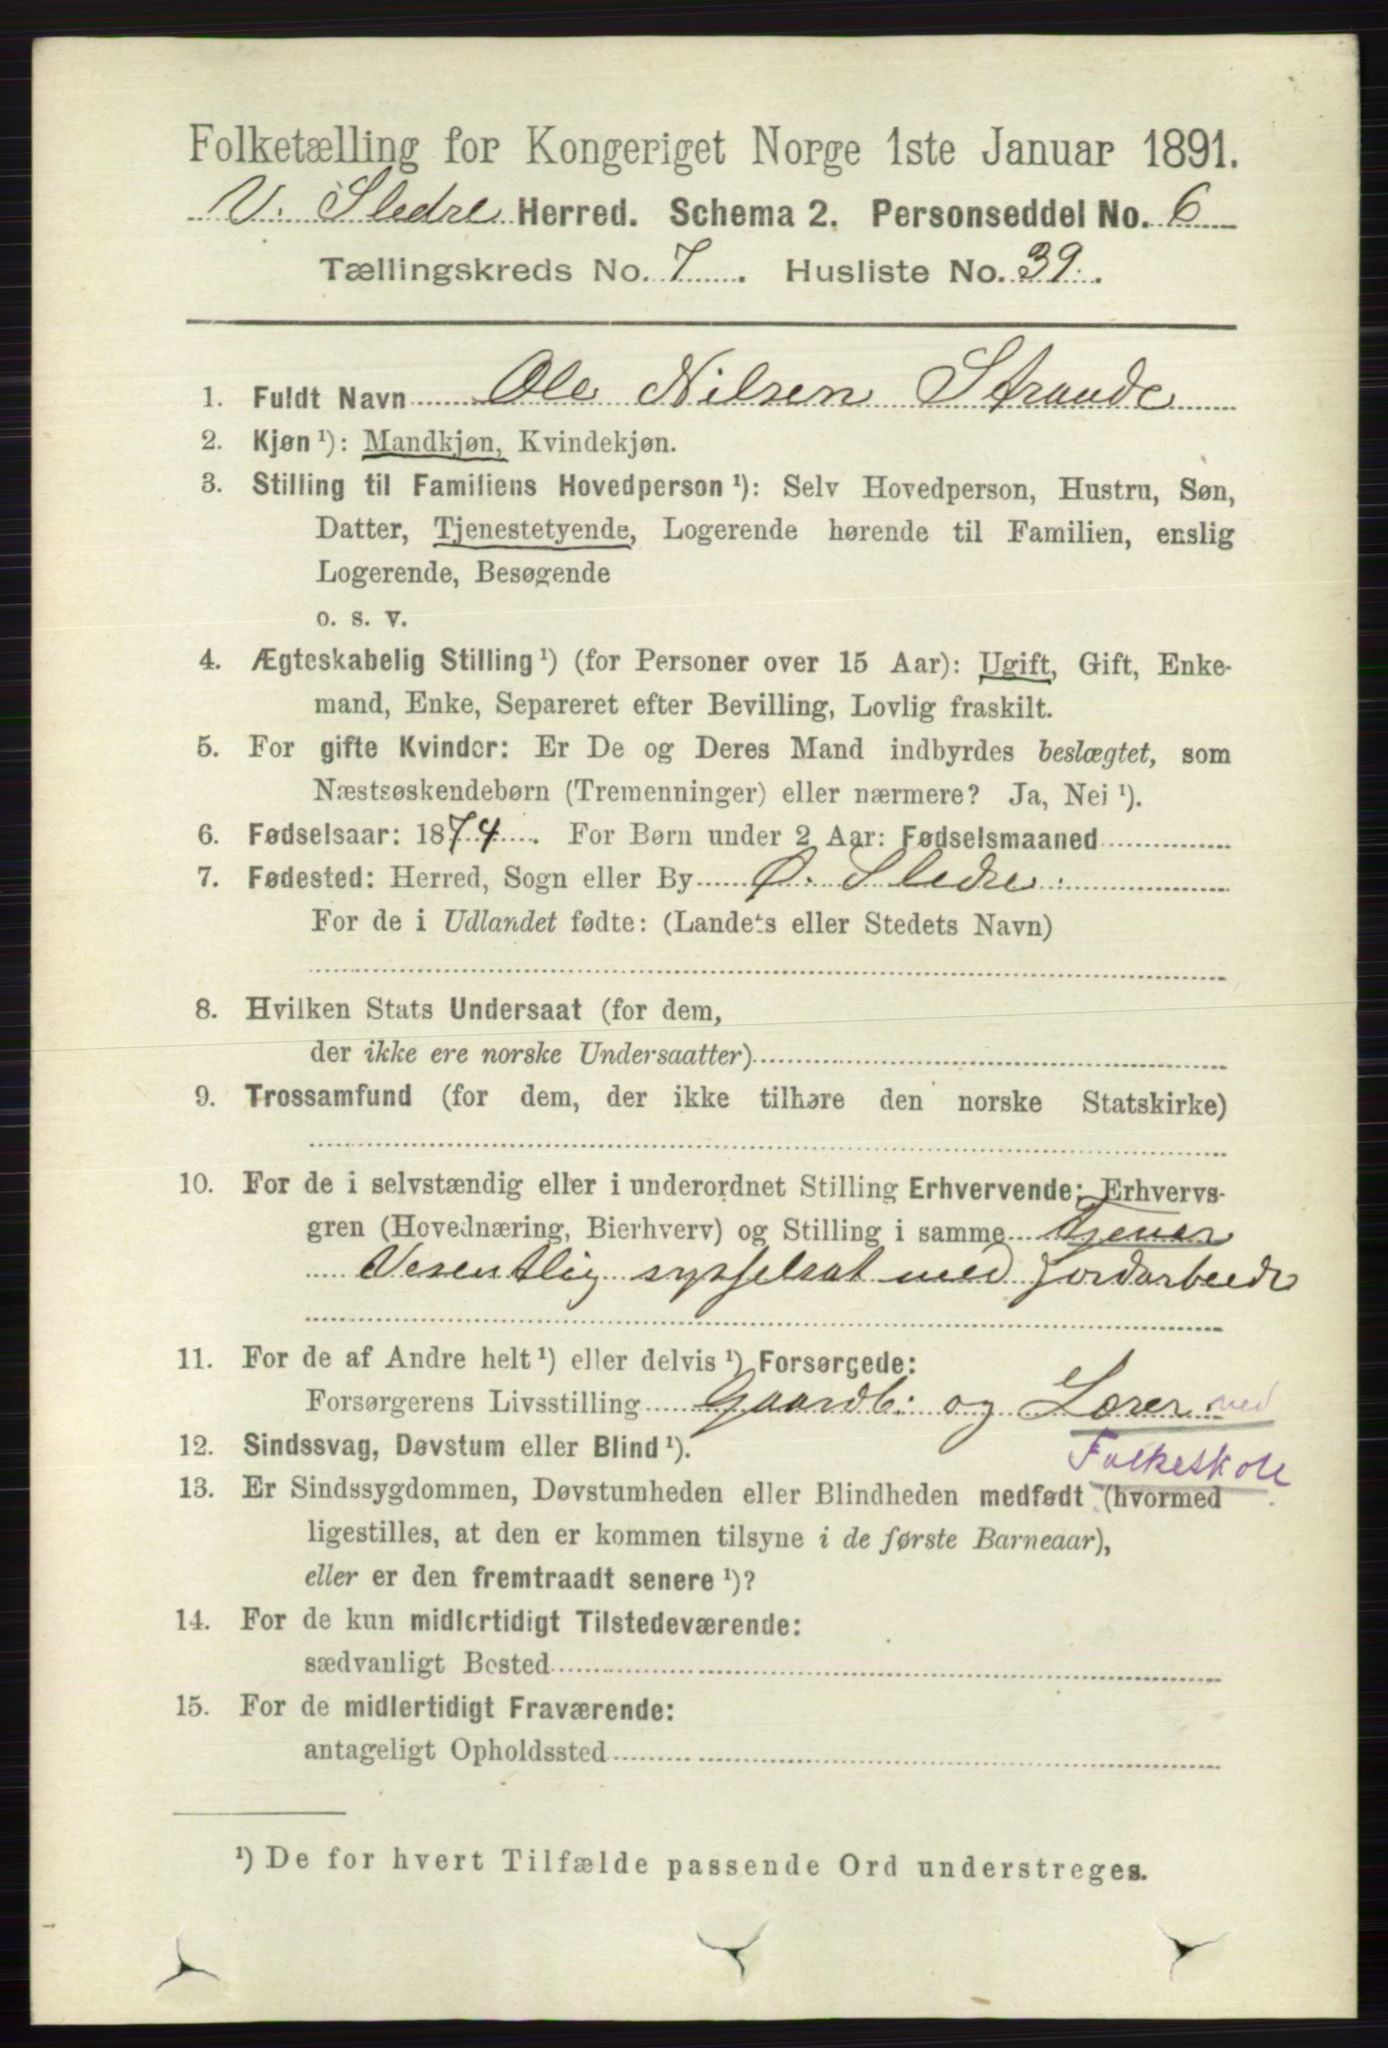 Folketælling for Kongeriget Norge 1ste Januar 1891.
V. Sledre Herred. Schema 2. Personseddel No. 6
Tællingskreds No. 7. Husliste No. 39.
1. Fuldt Navn Ole Nilsen Strande
2. Kjøn ¹): Mandkjøn, Kvindekjøn.
3. Stilling til Familiens Hovedperson ¹): Selv Hovedperson, Hustru, Søn,
Datter, Tjenestetyende, Logerende hørende til Familien, enslig
Logerende, Besøgende
o. s. v.
4. Ægteskabelig Stilling ¹) (for Personer over 15 Aar): Ugift, Gift, Enke-
mand, Enke, Separeret efter Bevilling, Lovlig fraskilt.
5. For gifte Kvinder: Er De og Deres Mand indbyrdes beslægtet, som
Næstsøskendebørn (Tremenninger) eller nærmere? Ja, Nei ¹).
6. Fødselsaar: 1874. For Børn under 2 Aar: Fødselsmaaned
7. Fødested: Herred, Sogn eller By Ø. Sledre.
For de i Udlandet fødte: (Landets eller Stedets Navn)
8. Hvilken Stats Undersaat (for dem,
der ikke ere norske Undersaatter)
9. Trossamfund (for dem, der ikke tilhøre den norske Statskirke)
10. For de i selvstændig eller i underordnet Stilling Erhvervende: Erhvervs-
gren (Hovednæring, Bierhverv) og Stilling i samme tjener
Vesentlig sysselsat med jordarbeide
11. For de af Andre helt ¹) eller delvis ¹) Forsørgede:
Forsørgerens Livsstilling Gaardb. og Lærer ved
Folkeskole
12. Sindssvag, Døvstum eller Blind ¹).
13. Er Sindssygdommen, Døvstumheden eller Blindheden medfødt (hvormed
ligestilles, at den er kommen tilsyne i de første Barneaar),
eller er den fremtraadt senere ¹)?
14. For de kun midlertidigt Tilstedeværende:
sædvanligt Bosted
15. For de midlertidigt Fraværende:
antageligt Opholdssted
¹) De for hvert Tilfælde passende Ord understreges.